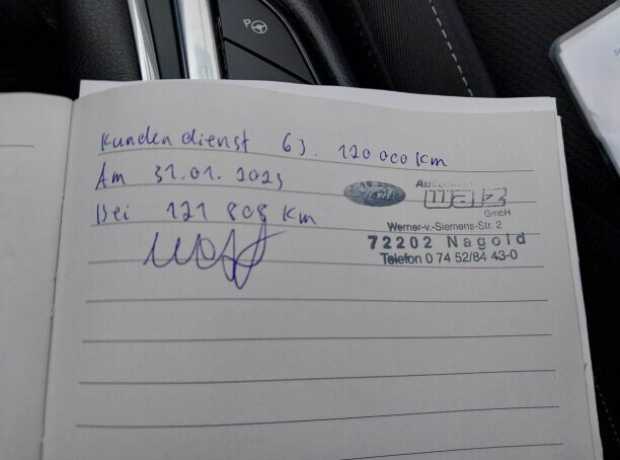 Kundendienst 6J. 120 000 km
Am 31.01.2023
Bei 121 808 km
GmbH
Werner-v.-Siemens-Str. 2
72202 Nagold
Telefon 0 74 52/84 43-0
P